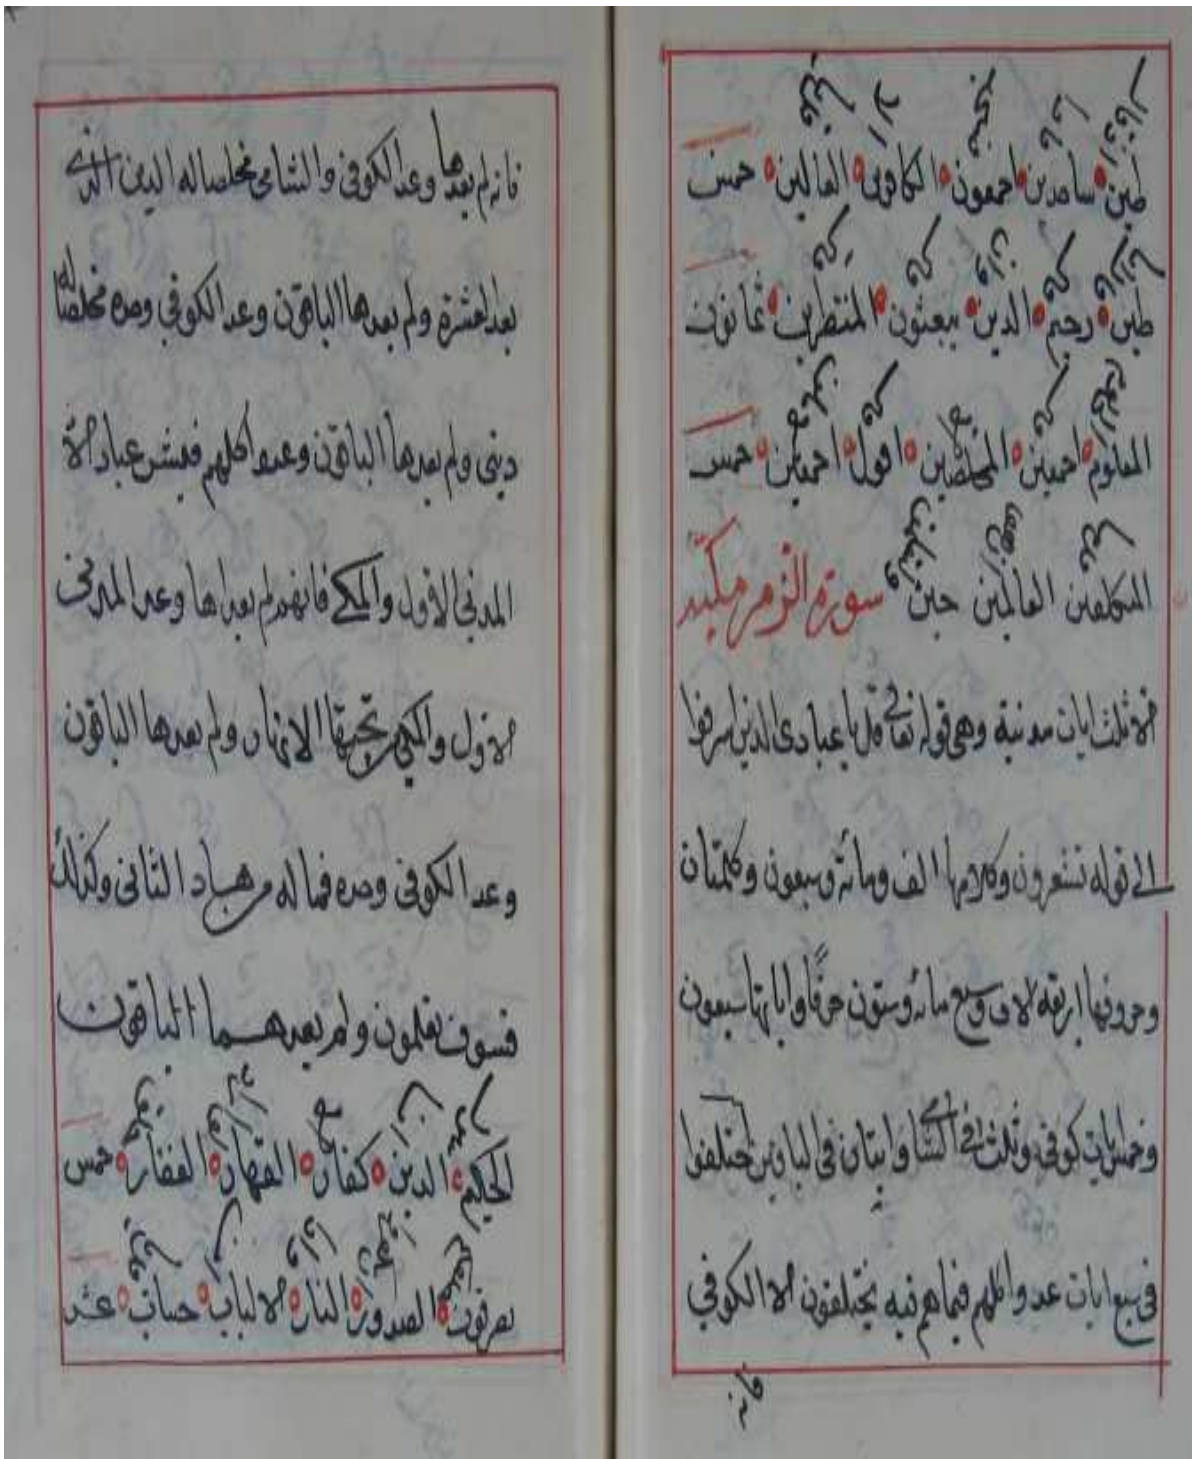 طين ساجدين اجمعون الكافرين العالين خمس
طين رجيم الدين يبعثون المنظرين ثمانون
المعلوم اجمعين المخلصين اقول اجمعين خمس
المتكلفين العالمين حين سورة الزمر مكية
الا ثلث ايات مدنية وهي قوله تعالى قل يا عبادي الذين اسرفوا
الى قوله تشعرون وكلامها الف ومائة وسبعون وكلمتان
وحروفها اربعة الاف وسبع مائة وستون حرفا واياتها سبعون
وخمس ايات كوفي وثلث في الشامي وايتان في الباقين اختلفوا
في سبع ايات عدوا كلهم فيما هم فيه يختلفون الا الكوفي
فانه لم يعدها وعد الكوفي والشامي مخلصا له الدين الذي
بعد العشرة ولم يعدها الباقون وعد الكوفي وحده مخلصا له
ديني ولم يعدها الباقون وعدوا كلهم فبشر عباد الا
المدني الاول والمكي فانهم لم يعداها وعد المدني
الاول والمكي من تحتها الانهار ولم يعدها الباقون
وعد الكوفي وحده فما له من هاد الثاني وكذلك
فسوف تعلمون ولم يعدهما الباقون
الحكيم الدين كفار القهار الغفار خمس
تصرفون الصدور النار الالباب حساب عشر